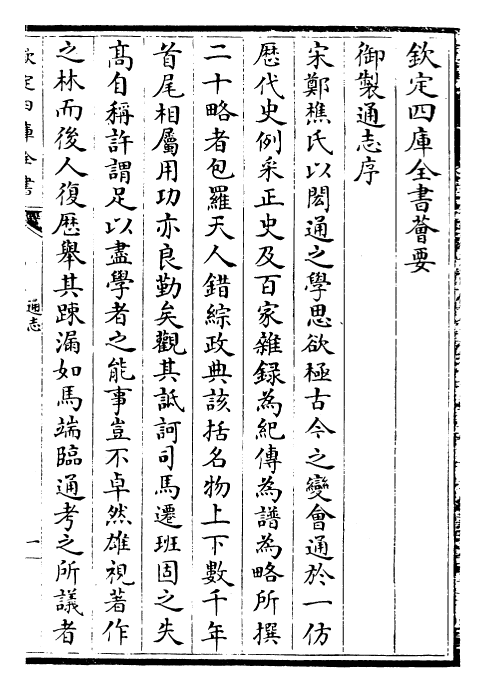 欽定四庫全書薈要
御製通志序
宋鄭樵氏以閎通之學思欲極古今之變會通於一仿
歷代史例采正史及百家雜録為紀傳為譜為略所撰
二十略者包羅天人錯綜政典該括名物上下數千年
首尾相屬用功亦良勤矣觀其詆訶司馬遷班固之失
髙自稱許謂足以盡學者之能事豈不卓然雄視著作
之林而後人復歷舉其踈漏如馬端臨通考之所議者
欽定四庫全書
通志
一